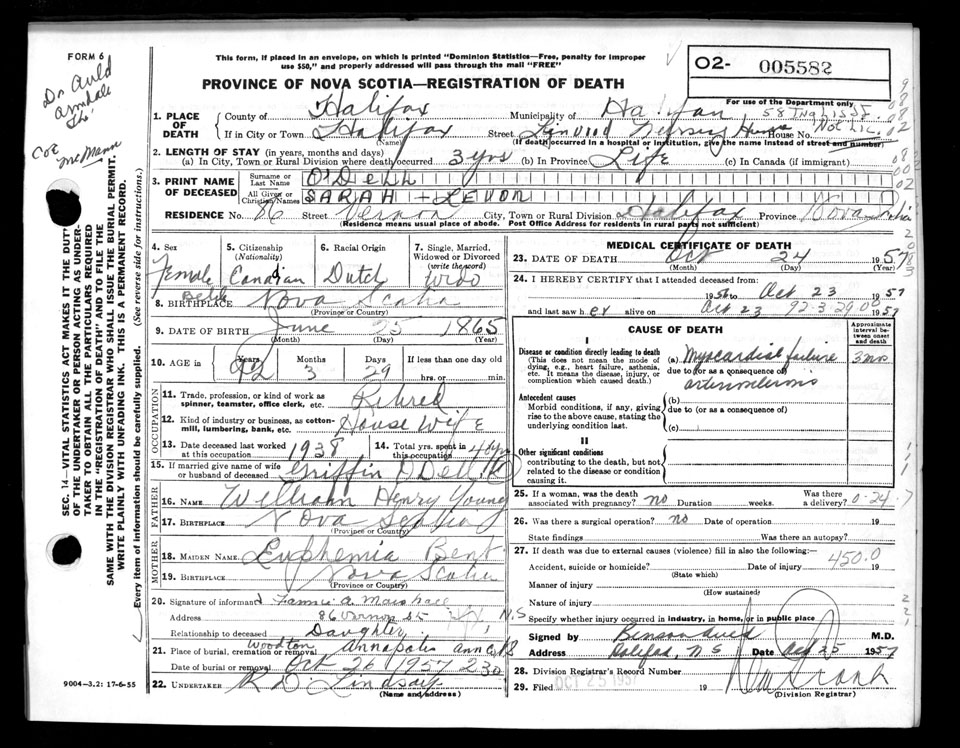 FORM 6
This form, if placed in an envelope, on which is printed "Dominion Statistics—Free, penalty for improper
use $50," and properly addressed will pass through the mail "FREE"
O2- 005582
PROVINCE OF NOVA SCOTIA—REGISTRATION OF DEATH
For use of the Department only
Dr Auld
Armdale
Cor McMann
1. PLACE OF DEATH
County of Halifax
Municipality of Halifax
58 Inglis St.
If in City or Town Halifax Street Nursing Home House No. Not Lic.
(Name)
(If death occurred in a hospital or institution, give the name instead of street and number)
2. LENGTH OF STAY (in years, months and days)
(a) In City, Town or Rural Division where death occurred 3 yrs (b) In Province Life (c) In Canada (if immigrant)
3. PRINT NAME OF DECEASED
Surname or Last Name O'DELL
All Given or Christian Names SARAH
RESIDENCE No. 86 Street Vernon City, Town or Rural Division Halifax Province Nova Scotia
(Residence means usual place of abode. Post Office Address for residents in rural parts not sufficient)
4. Sex
Female
5. Citizenship (Nationality)
Canadian
6. Racial Origin
Dutch
7. Single, Married, Widowed or Divorced (write the word)
Wido
8. BIRTHPLACE Nova Scotia
(Province or Country)
9. DATE OF BIRTH June 25 1865
(Month) (Day) (Year)
10. AGE in
Years 92
Months 3
Days 29
If less than one day old
hrs. or min.
OCCUPATION
11. Trade, profession, or kind of work as spinner, teamster, office clerk, etc. Retired
12. Kind of industry or business, as cotton-mill, lumbering, bank, etc. House Wife
13. Date deceased last worked at this occupation 1938
14. Total yrs. spent in this occupation
15. If married give name of wife or husband of deceased Griffin O Dell
FATHER
16. NAME William Henry Young
17. BIRTHPLACE Nova Scotia
(Province or Country)
MOTHER
18. MAIDEN NAME Euphemia Bent
19. BIRTHPLACE Nova Scotia
(Province or Country)
20. Signature of informant Fannie A. Marshall
Address 86 Vernon St N.S
Relationship to deceased Daughter
21. Place of burial, cremation or removal Annapolis
Date of burial or removal Oct 26 1957 2 30
22. UNDERTAKER R D Lindsay
(Name and Address)
9004—3.2: 17-6-55
MEDICAL CERTIFICATE OF DEATH
23. DATE OF DEATH Oct 24 1957
(Month) (Day) (Year)
24. I HEREBY CERTIFY that I attended deceased from:
1956 to Oct 23 1957
and last saw her alive on Oct 23 1957
92-3-29.00
CAUSE OF DEATH
Approximate interval between onset and death
I
Disease or condition directly leading to death
(This does not mean the mode of dying, e.g., heart failure, asthenia, etc. It means the disease, injury, or complication which caused death.)
(a) Myocardial failure 3 mos
due to (or as a consequence of)
arteriosclerosis
Antecedent causes
Morbid conditions, if any, giving rise to the above cause, stating the underlying condition last.
(b)
due to (or as a consequence of)
(c)
II
Other significant conditions
contributing to the death, but not related to the disease or condition causing it.
25. If a woman, was the death associated with pregnancy? no Duration weeks. Was there a delivery?
26. Was there a surgical operation? no Date of operation 19
State findings Was there an autopsy?
27. If death was due to external causes (violence) fill in also the following:—
450.0
Accident, suicide or homicide? Date of injury 19
(State which)
Manner of injury
(How sustained)
Nature of injury
Specify whether injury occurred in industry, in home, or in public place
Signed by Benson Auld M.D.
Address Halifax, N S Date Oct 25 1957
28. Division Registrar's Record Number
29. Filed OCT 25 1957 19
(Division Registrar)
SEC. 14—VITAL STATISTICS ACT MAKES IT THE DUTY
OF THE UNDERTAKER OR PERSON ACTING AS UNDER-
TAKER TO OBTAIN ALL THE PARTICULARS REQUIRED
IN THE "REGISTRATION OF DEATH" AND TO FILE THE
SAME WITH THE DIVISION REGISTRAR WHO SHALL ISSUE THE BURIAL PERMIT.
WRITE PLAINLY WITH UNFADING INK. THIS IS A PERMANENT RECORD.
Every item of information should be carefully supplied. (See reverse side for instructions.)